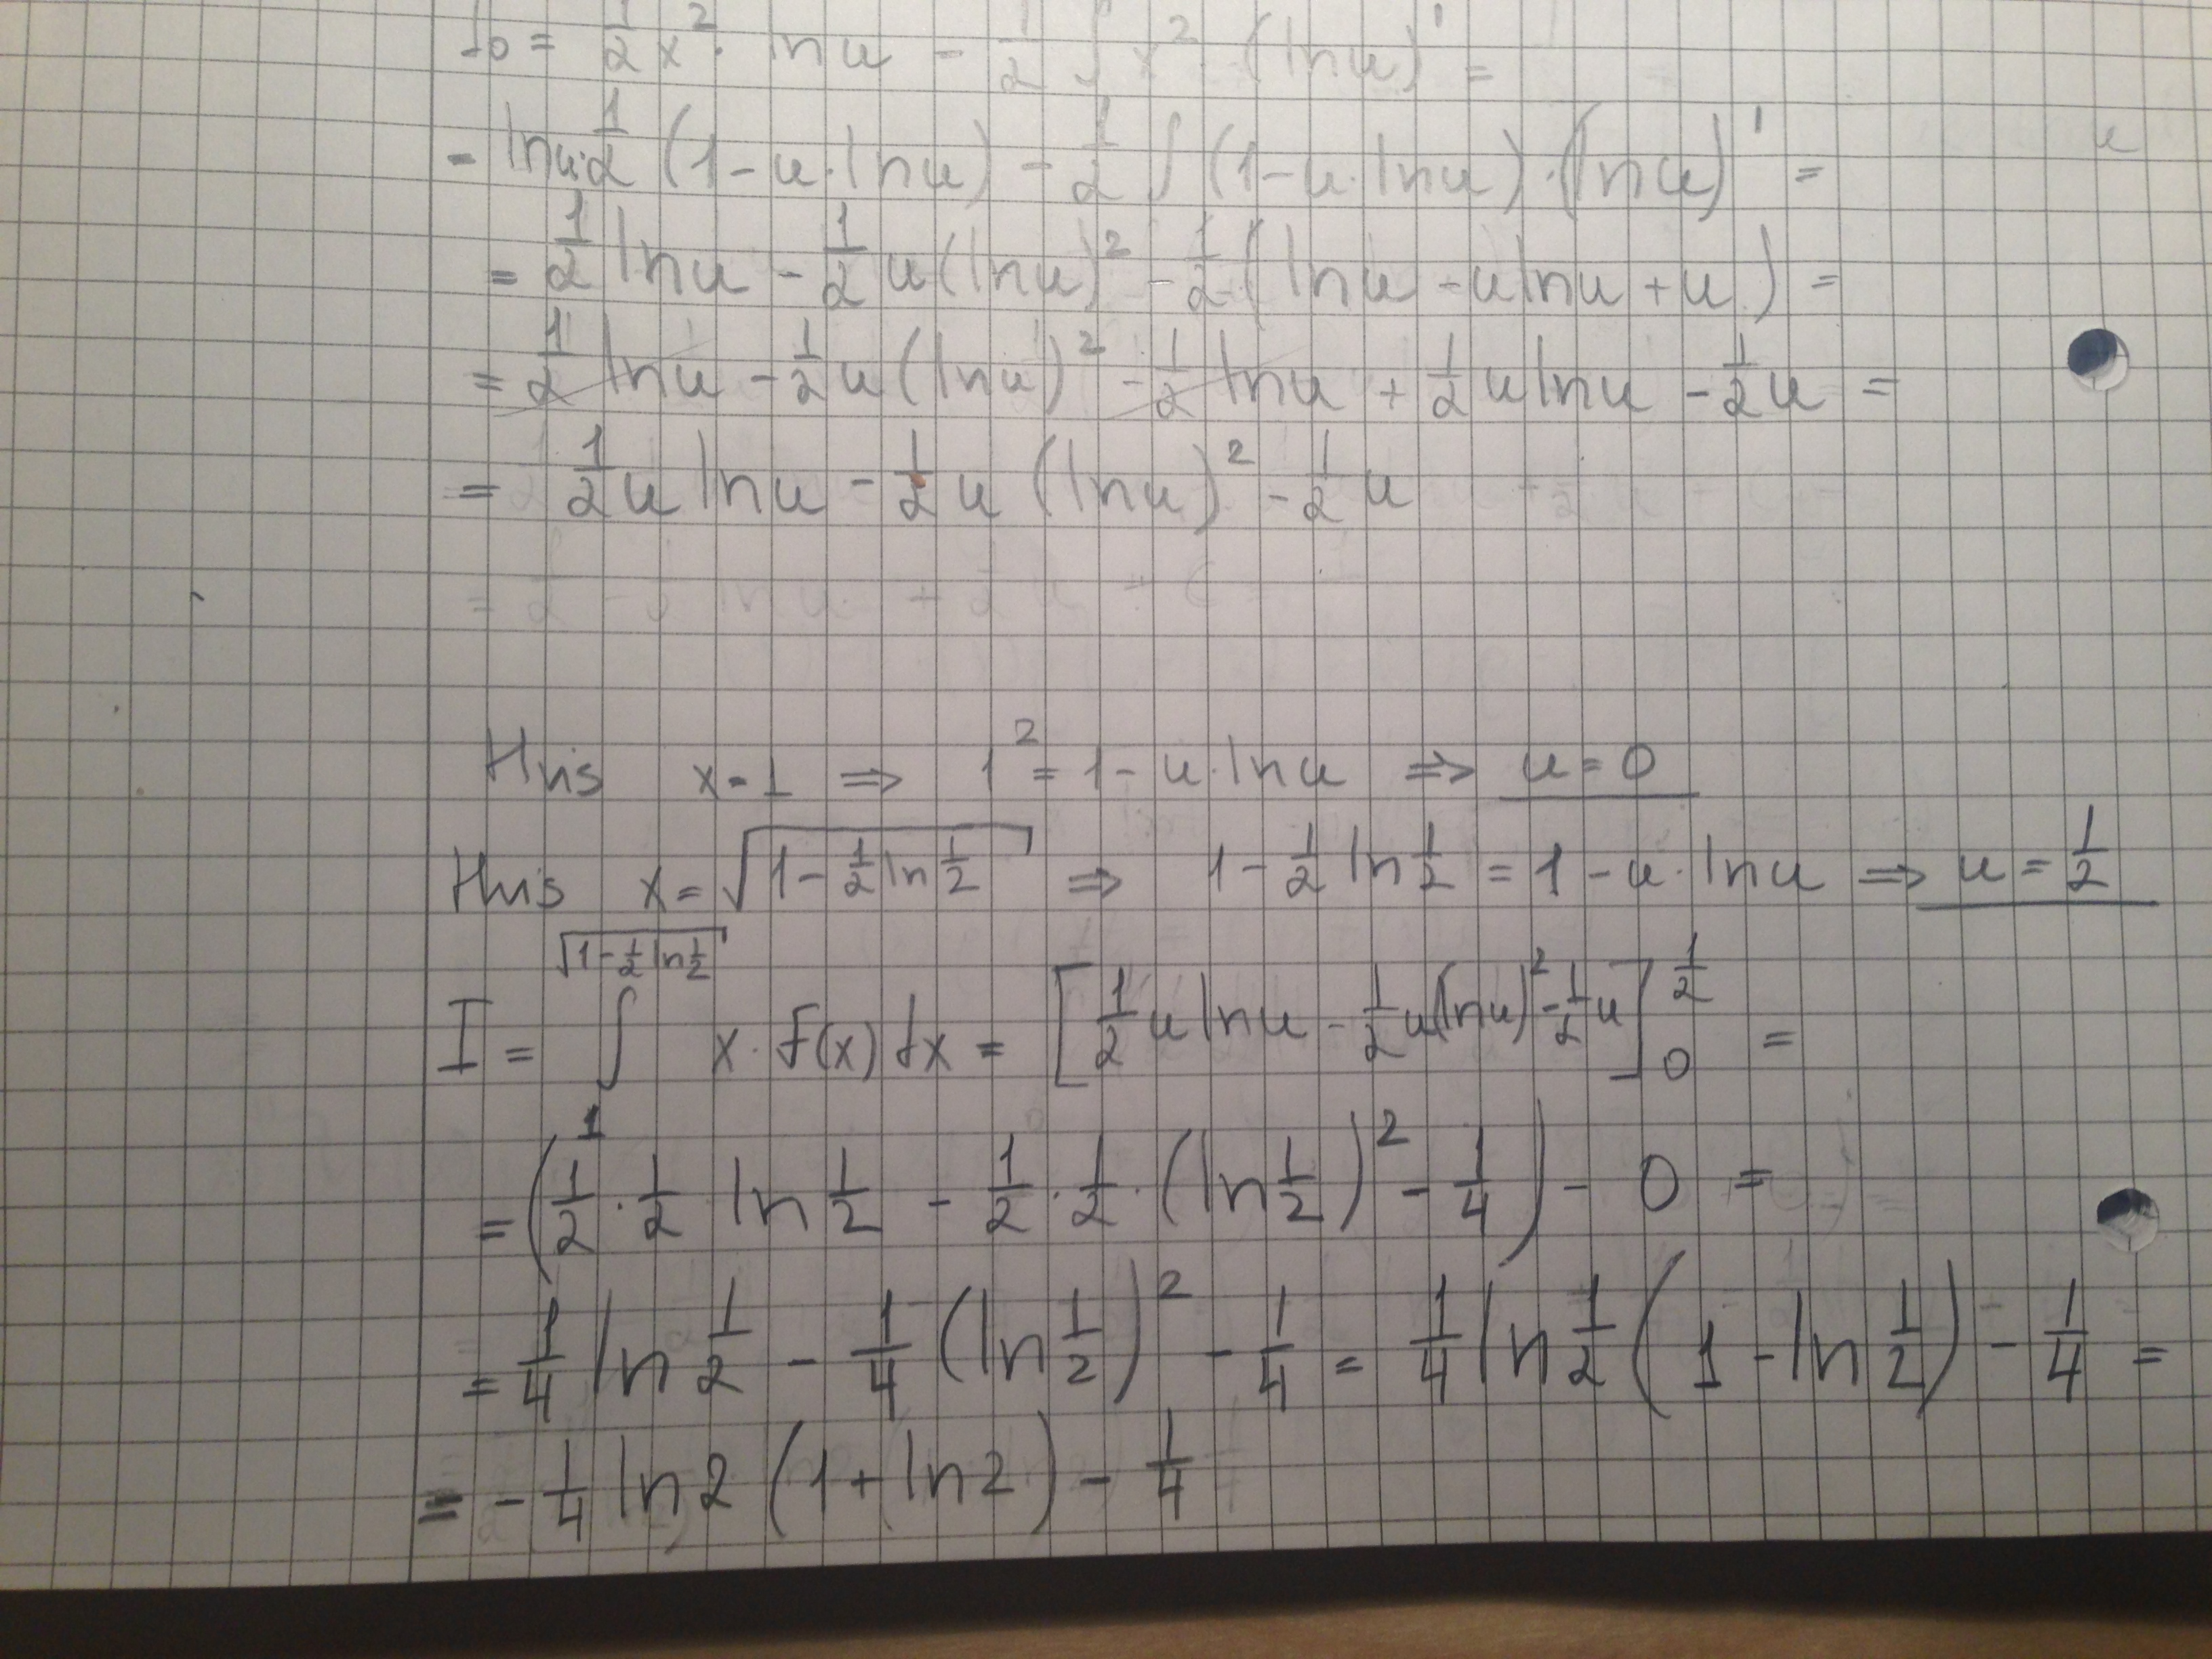 I₀ = 1/2 x² · ln u - 1/2 ∫ x² · (ln u)' =
- ln u · 1/2 (1 - u · ln u) - 1/2 ∫ (1 - u · ln u) · (ln u)' =
= 1/2 ln u - 1/2 u (ln u)² - 1/2 (ln u - u ln u + u) =
= 1/2 ln u - 1/2 u (ln u)² - 1/2 ln u + 1/2 u ln u - 1/2 u =
= 1/2 u ln u - 1/2 u (ln u)² - 1/2 u
Hvis x = 1 ⇒ 1² = 1 - u · ln u ⇒ u = 0
Hvis x = √(1 - 1/2 ln 1/2) ⇒ 1 - 1/2 ln 1/2 = 1 - u · ln u ⇒ u = 1/2
I = ∫₁^√(1 - 1/2 ln 1/2) x · f(x) dx = [1/2 u ln u - 1/2 u (ln u)² - 1/2 u]₀^1/2 =
= (1/2 · 1/2 · ln 1/2 - 1/2 · 1/2 · (ln 1/2)² - 1/4) - 0 =
= 1/4 ln 1/2 - 1/4 (ln 1/2)² - 1/4 = 1/4 ln 1/2 (1 - ln 1/2) - 1/4 =
= - 1/4 ln 2 (1 + ln 2) - 1/4